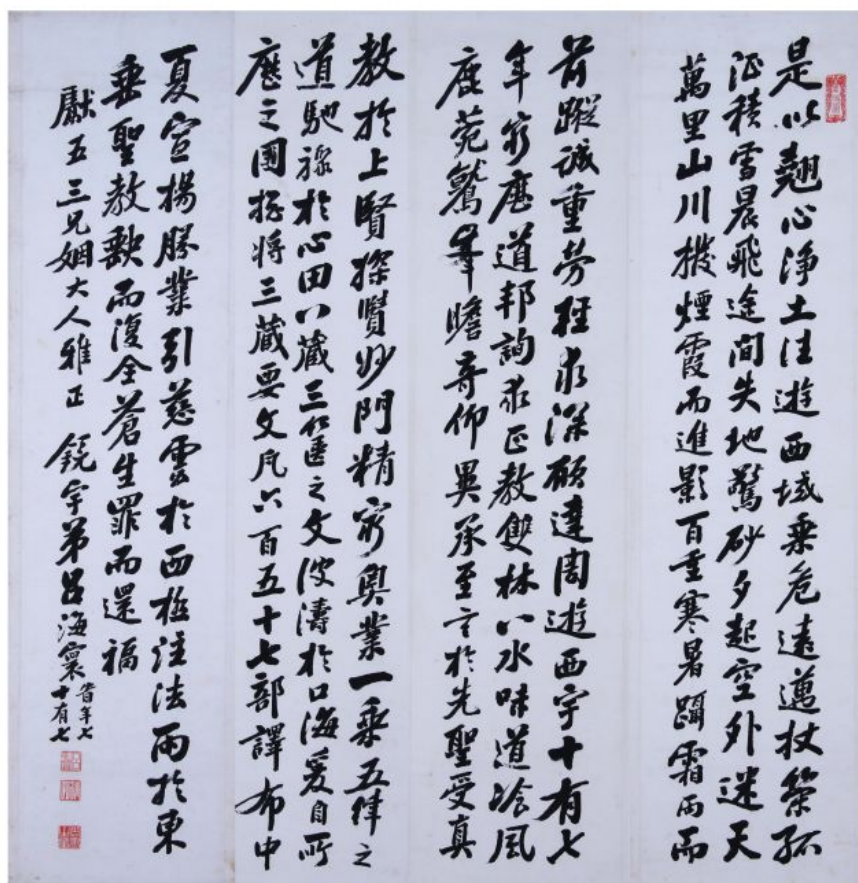 是以翹心淨土往遊西域乘危遠邁杖策孤
征積雪晨飛途間失地驚砂夕起空外迷天
萬里山川撥煙霞而進影百重寒暑躡霜雨而
前蹤誠重勞輕求深願達周遊西宇十有七
年窮歷道邦詢求正教雙林八水味道飡風
鹿菀鷲峯瞻奇仰異承至言於先聖受真
教於上賢探賾妙門精窮奧業一乘五律之
道馳驟於心田八藏三篋之文波濤於口海爰自所
歷之國摠將三藏要文凡六百五十七部譯布中
夏宣揚勝業引慈雲於西極注法雨於東
垂聖教缺而復全蒼生罪而還福
獻五三兄姻大人雅正 鏡宇弟呂海寰
旹年七
十有七